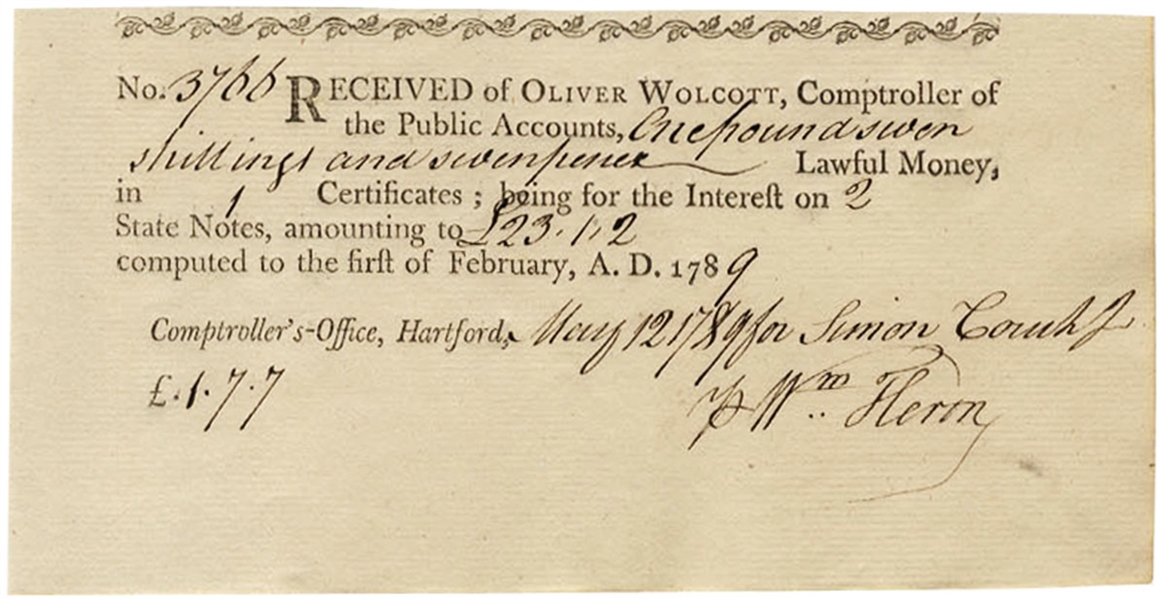 No. 3766 RECEIVED of OLIVER WOLCOTT, Comptroller of
the Public Accounts, One pound seven
shillings and sevenpence Lawful Money,
in 1 Certificates ; being for the Interest on 2
State Notes, amounting to £23.1.2
computed to the first of February, A. D. 1789
Comptroller's-Office, Hartford, May 12 1789 for Simon Couch Jr
£.1.7.7
Pr Wm Heron